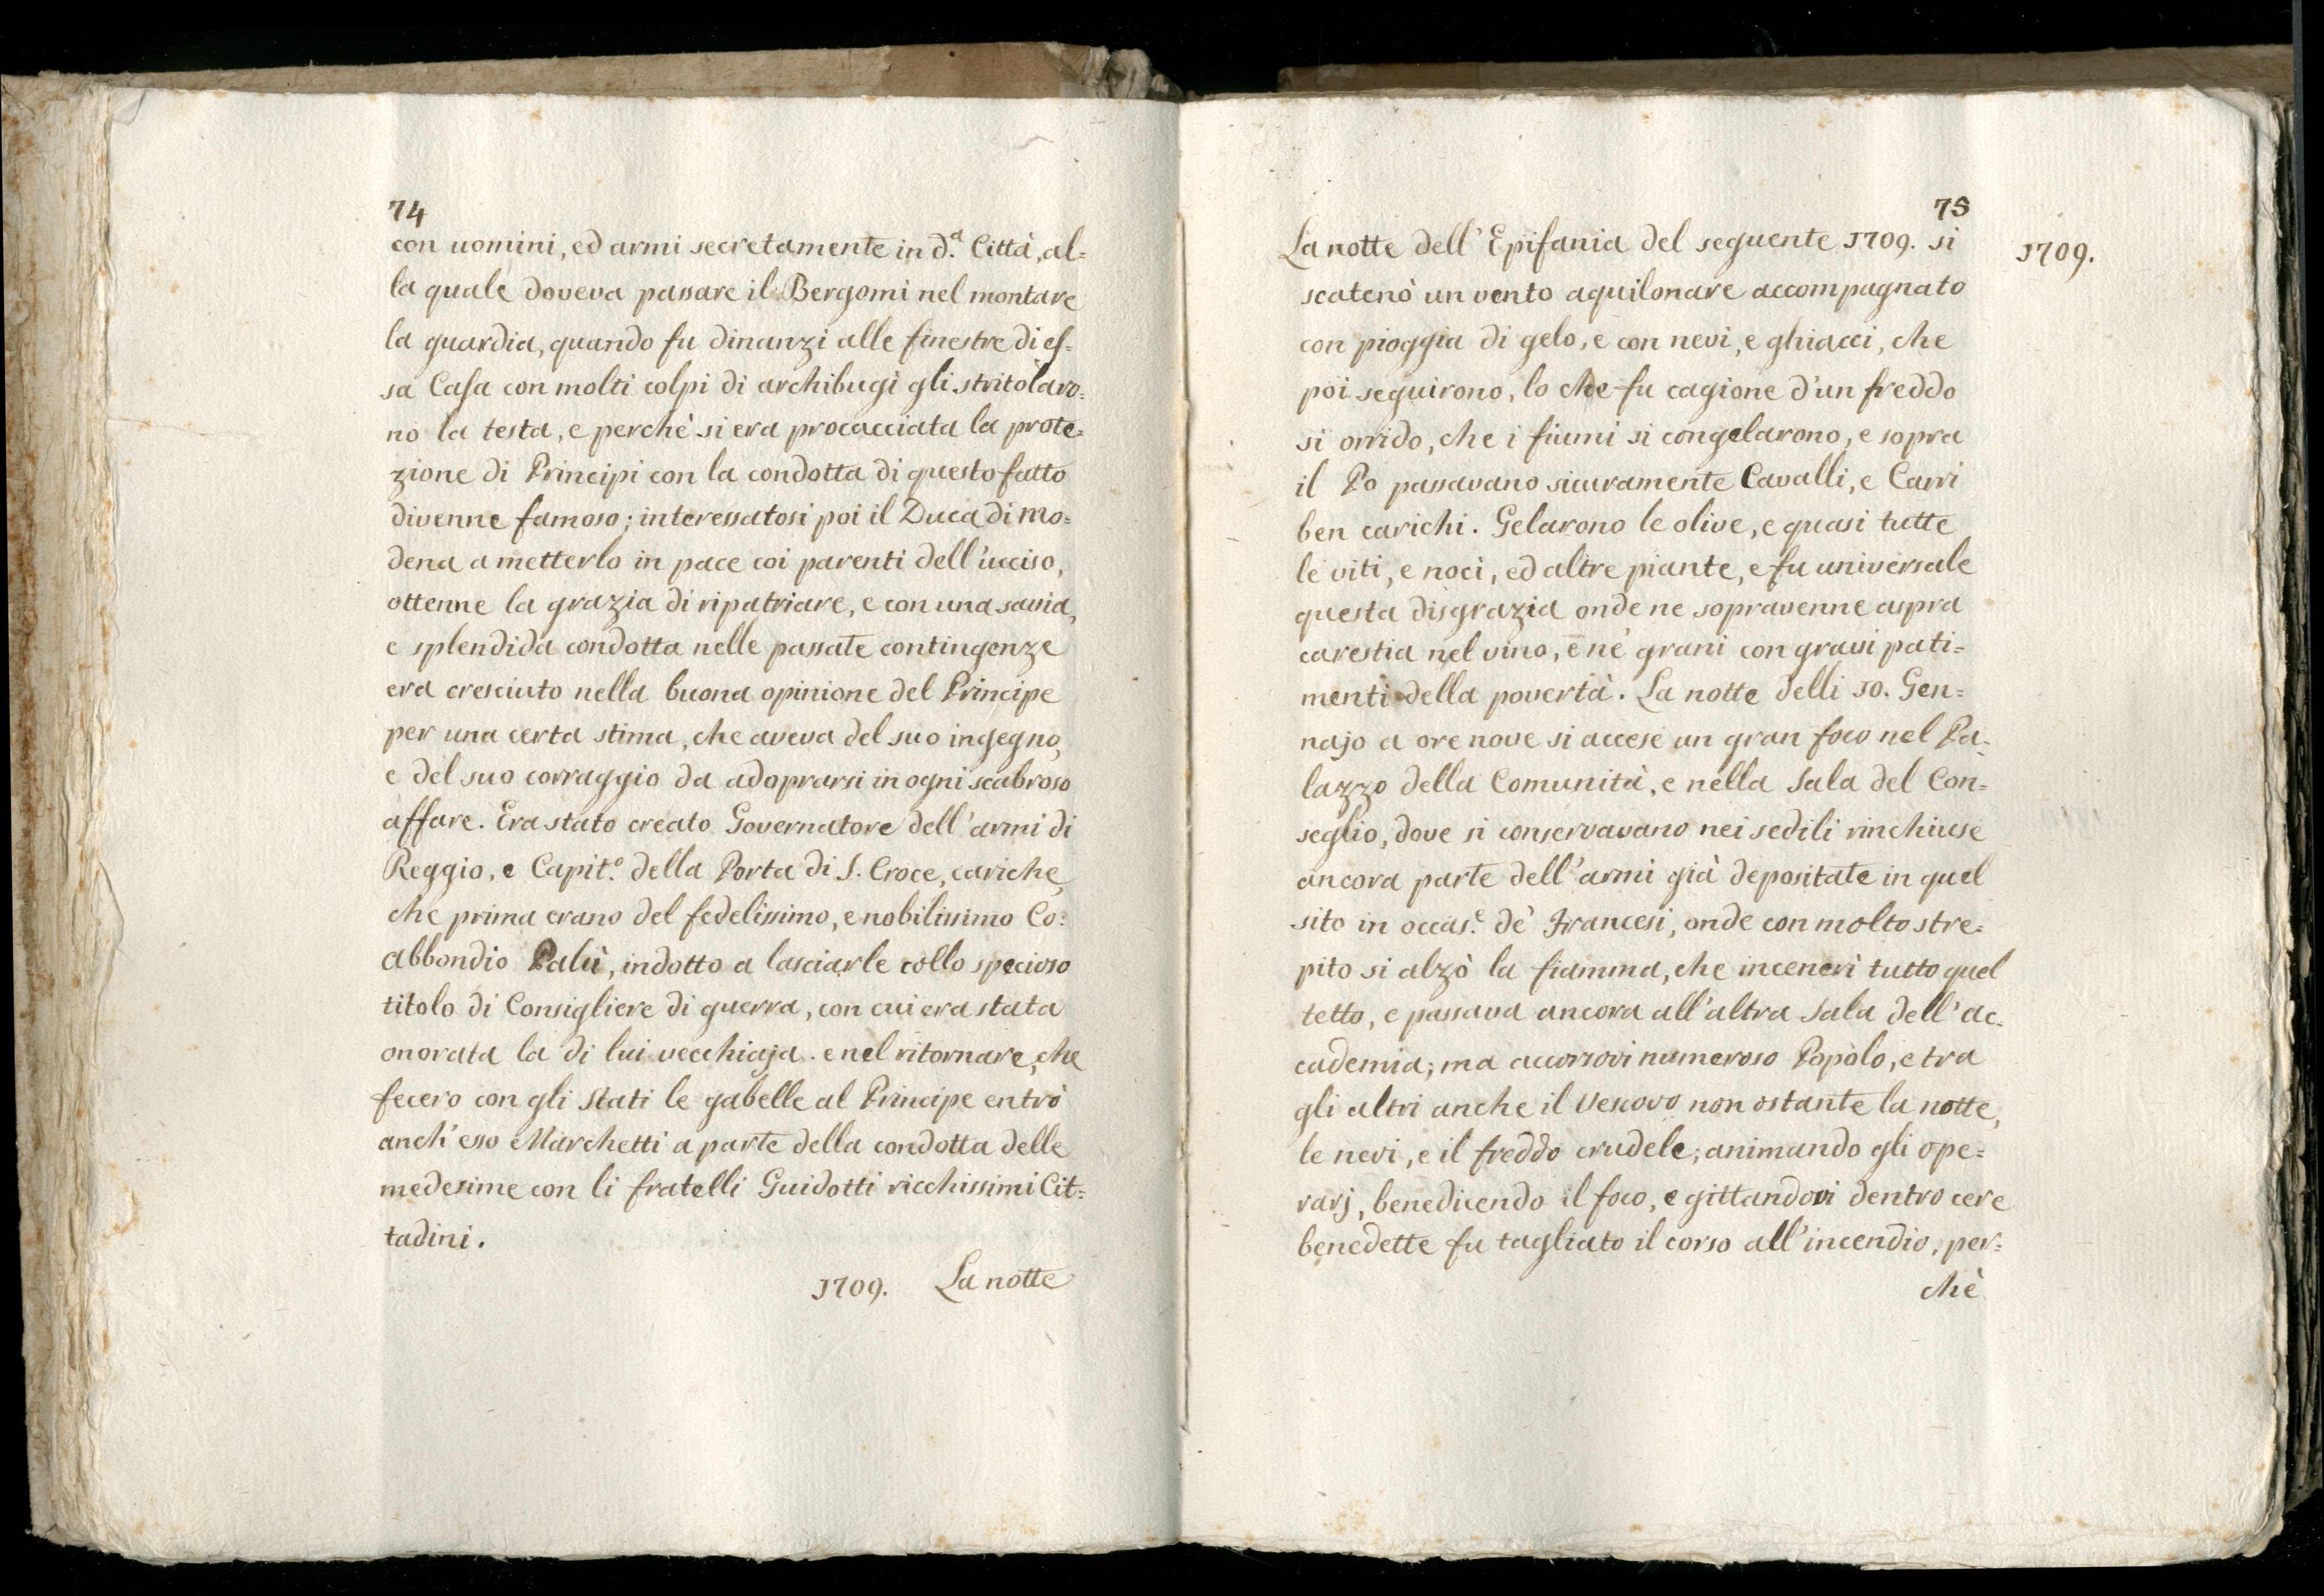 74
con uomini, ed armi secretamente in d.ª Città, al=
la quale doveva passare il Bergomi nel montare
la guardia, quando fu dinanzi alle finestre di es=
sa Casa con molti colpi di archibugi gli stritolaro=
no la testa, e perchè si era procacciata la prote=
zione di Principi con la condotta di questo fatto
divenne famoso; interessatosi poi il Duca di Mo=
dena a metterlo in pace coi parenti dell'ucciso,
ottenne la grazia di ripatriare, e con una savia,
e splendida condotta nelle passate contingenze
era cresciuto nella buona opinione del Principe
per una certa stima, che aveva del suo ingegno,
e del suo corraggio da adoprarsi in ogni scabroso
affare. Era stato creato Governatore dell'armi di
Reggio, e Capit.º della Porta di S. Croce, cariche,
che prima erano del fedelissimo, e nobilissimo Co:
Abbondio Palù, indotto a lasciarle collo specioso
titolo di Consigliere di guerra, con cui era stata
onorata la di lui vecchiaja. e nel ritornare, che
fecero con gli Stati le gabelle al Principe entrò
anch'esso Marchetti a parte della condotta delle
medesime con li fratelli Guidotti ricchissimi Cit=
tadini.
1709. La notte
75
La notte dell'Epifania del seguente 1709. si
1709.
scatenò un vento aquilonare accompagnato
con pioggia di gelo, e con nevi, e ghiacci, che
poi seguirono, lo che fu cagione d'un freddo
si orrido, che i fiumi si congelarono, e sopra
il Po passavano sicuramente Cavalli, e Carri
ben carichi. Gelarono le olive, e quasi tutte
le viti, e noci, ed altre piante, e fu universale
questa disgrazia onde ne sopravenne aspra
carestia nel vino, e ne' grani con gravi pati=
menti della povertà. La notte delli 10. Gen=
najo a ore nove si accese un gran foco nel Pa=
lazzo della Comunità, e nella Sala del Con=
seglio, dove si conservavano nei sedili rinchiuse
ancora parte dell'armi già depositate in quel
sito in occas.e de' Francesi, onde con molto stre=
pito si alzò la fiamma, che incenerì tutto quel
tetto, e passava ancora all'altra Sala dell'ac=
cademia; ma accorsovi numeroso Popolo, e tra
gli altri anche il Vescovo non ostante la notte,
le nevi, e il freddo crudele; animando gli ope=
rarj, benedicendo il foco, e gittandovi dentro cere
benedette fu tagliato il corso all'incendio, per=
chè